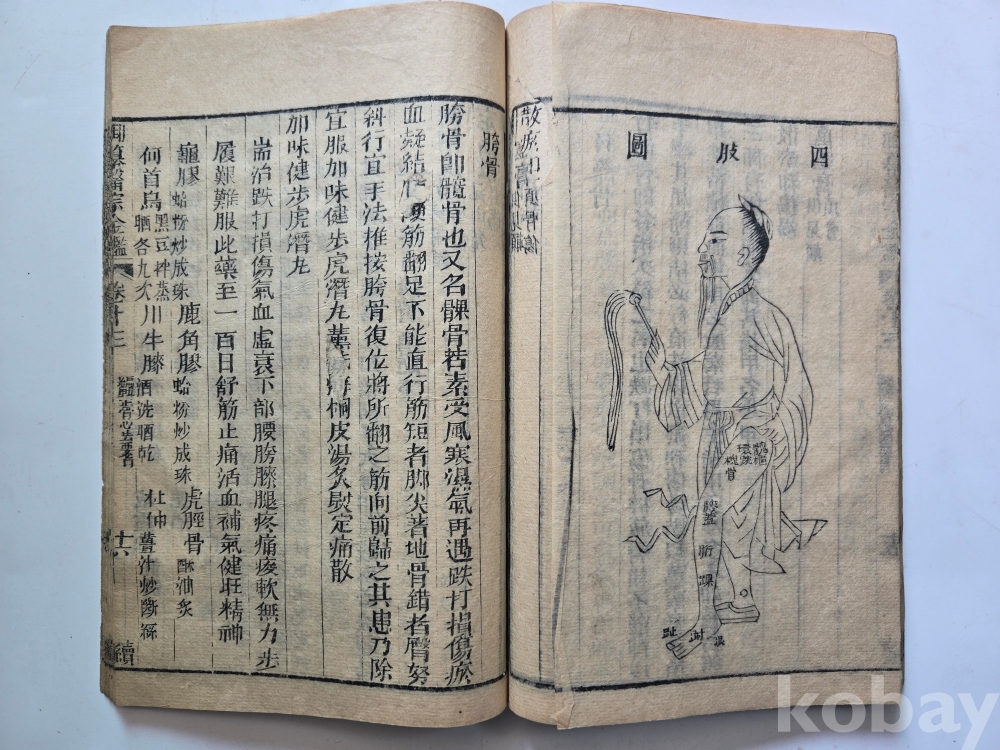 四肢圖
髖骨
膝蓋
胻
踝
趾
跗
跟
胯骨
胯骨即髖骨也又名髁骨若素受風寒濕氣再遇跌打損傷瘀
血凝結 硬筋翻足不能直行筋短者脚尖著地骨錯者臀努
斜行宜手法推按胯骨復位將所翻之筋向前歸之其患乃除
宜服加味健步虎潛丸 海桐皮湯炙熨定痛散
加味健步虎潛丸
耑治跌打損傷氣血虛衰下部腰胯膝腿疼痛痠軟無力步
履艱難服此藥至一百日舒筋止痛活血補氣健旺精神
龜膠 蛤粉炒成珠 鹿角膠 蛤粉炒成珠 虎脛骨 酥油炙
何首烏 黑豆拌蒸晒各九次 川牛膝 酒洗晒乾 杜仲 薑汁炒斷絲
醫宗金鑑 卷 十六 續
kobay